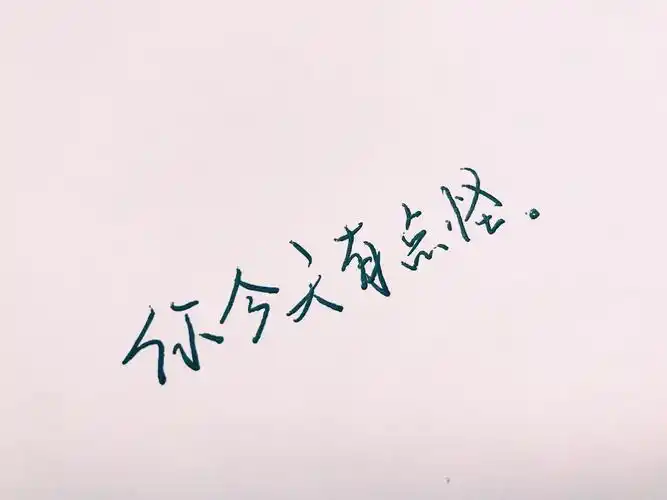 你今天有点怪。